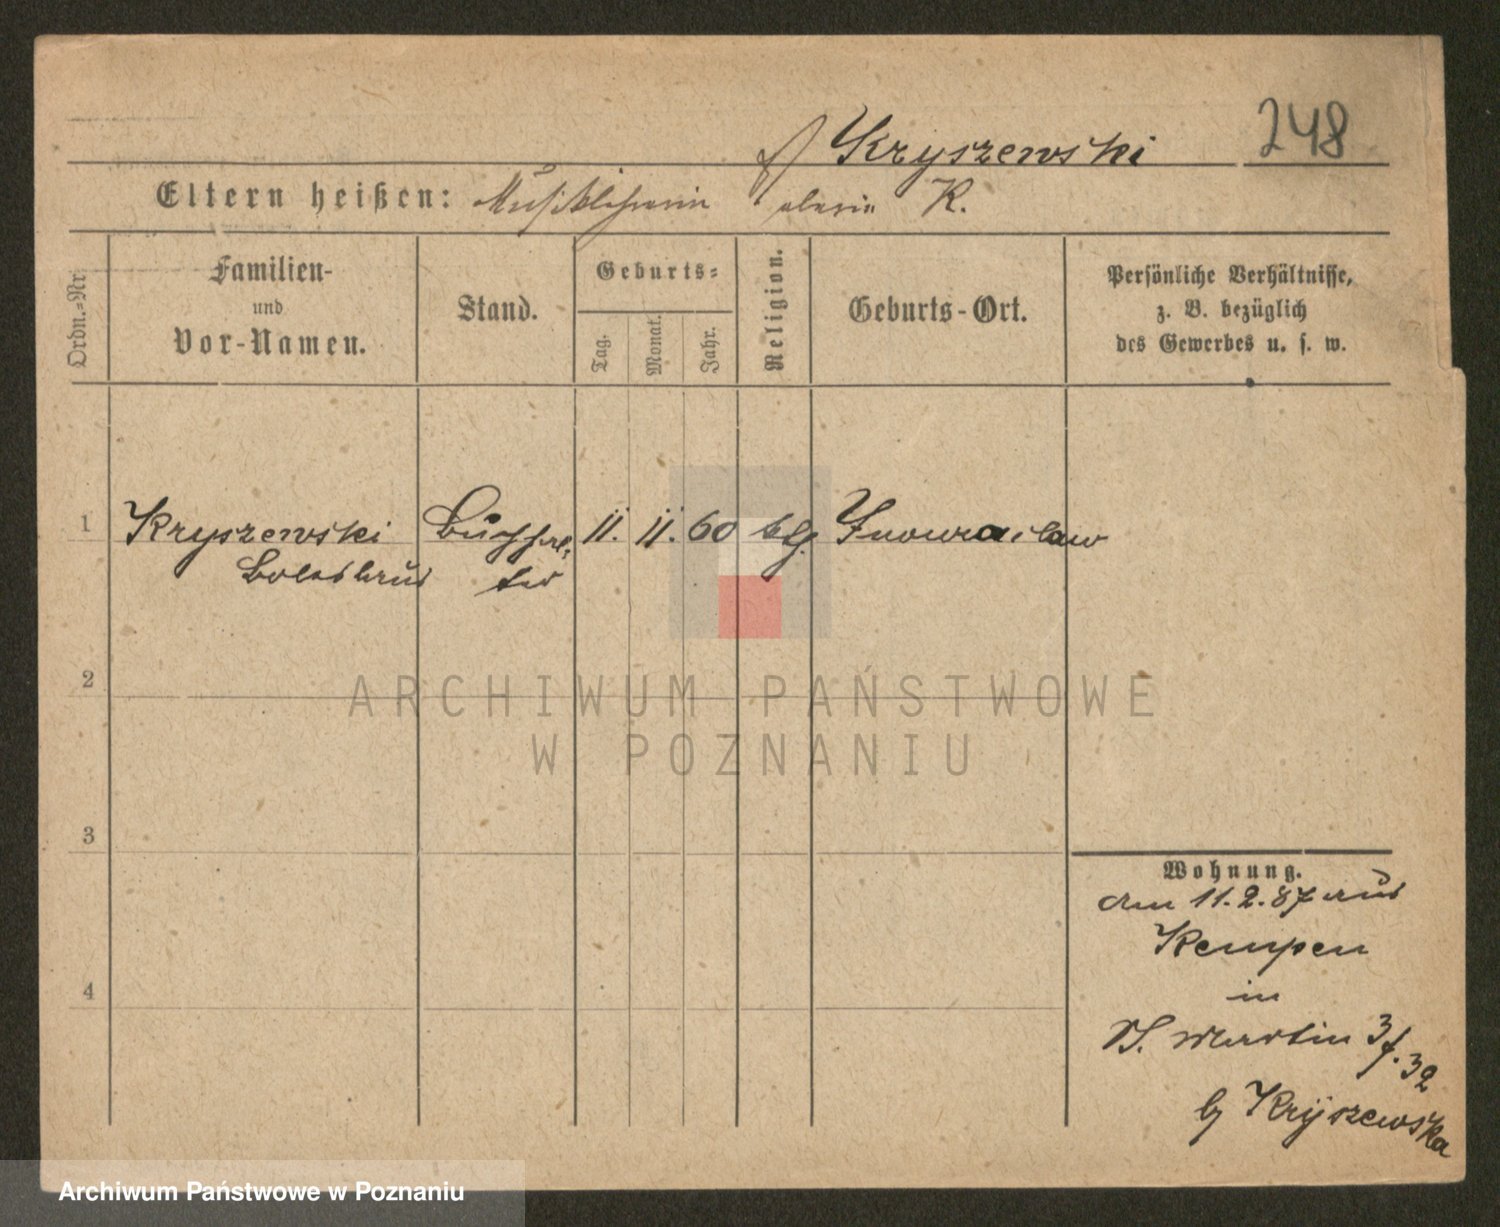 Kryszewski
248
Eltern heißen: Musiklehrerin K.
Ordn.-Nr.
Familien-
und
Vor-Namen.
Stand.
Geburts-
Tag.
Monat.
Jahr.
Religion.
Geburts-Ort.
Persönliche Verhältnisse,
z. B. bezüglich
des Gewerbes u. s. w.
1
Kryszewski
Boleslaus
Buchhal-
ter
11.
11.
60
ktl.
Inowraclaw
2
3
4
Wohnung.
am 11.2.87 aus
Kempen
in
S. Martin 3/f. 32
b/ Kryszewska
ARCHIWUM PAŃSTWOWE
W POZNANIU
Archiwum Państwowe w Poznaniu